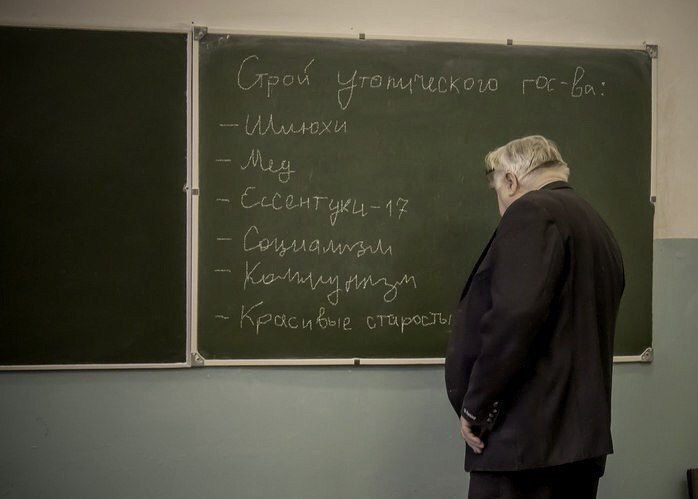 Строй утопического гос-ва:
- Шлюхи
- Мед
- Ессентуки-17
- Социализм
- Коммунизм
- Красивые старосты